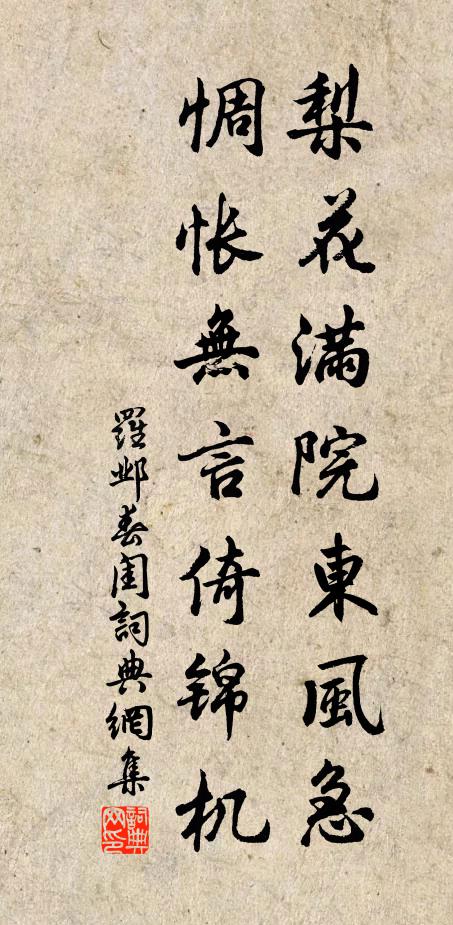 梨花滿院東風急
惆悵無言倚錦机
羅邺春閨詞典網集
詞典
网印